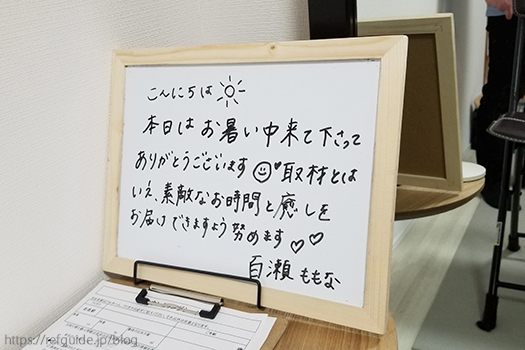 こんにちは
本日はお暑い中来て下さって
ありがとうございます 取材とは
いえ、素敵なお時間と癒しを
お届けできますよう努めます
百瀬 ももな
https://refguide.jp/blog